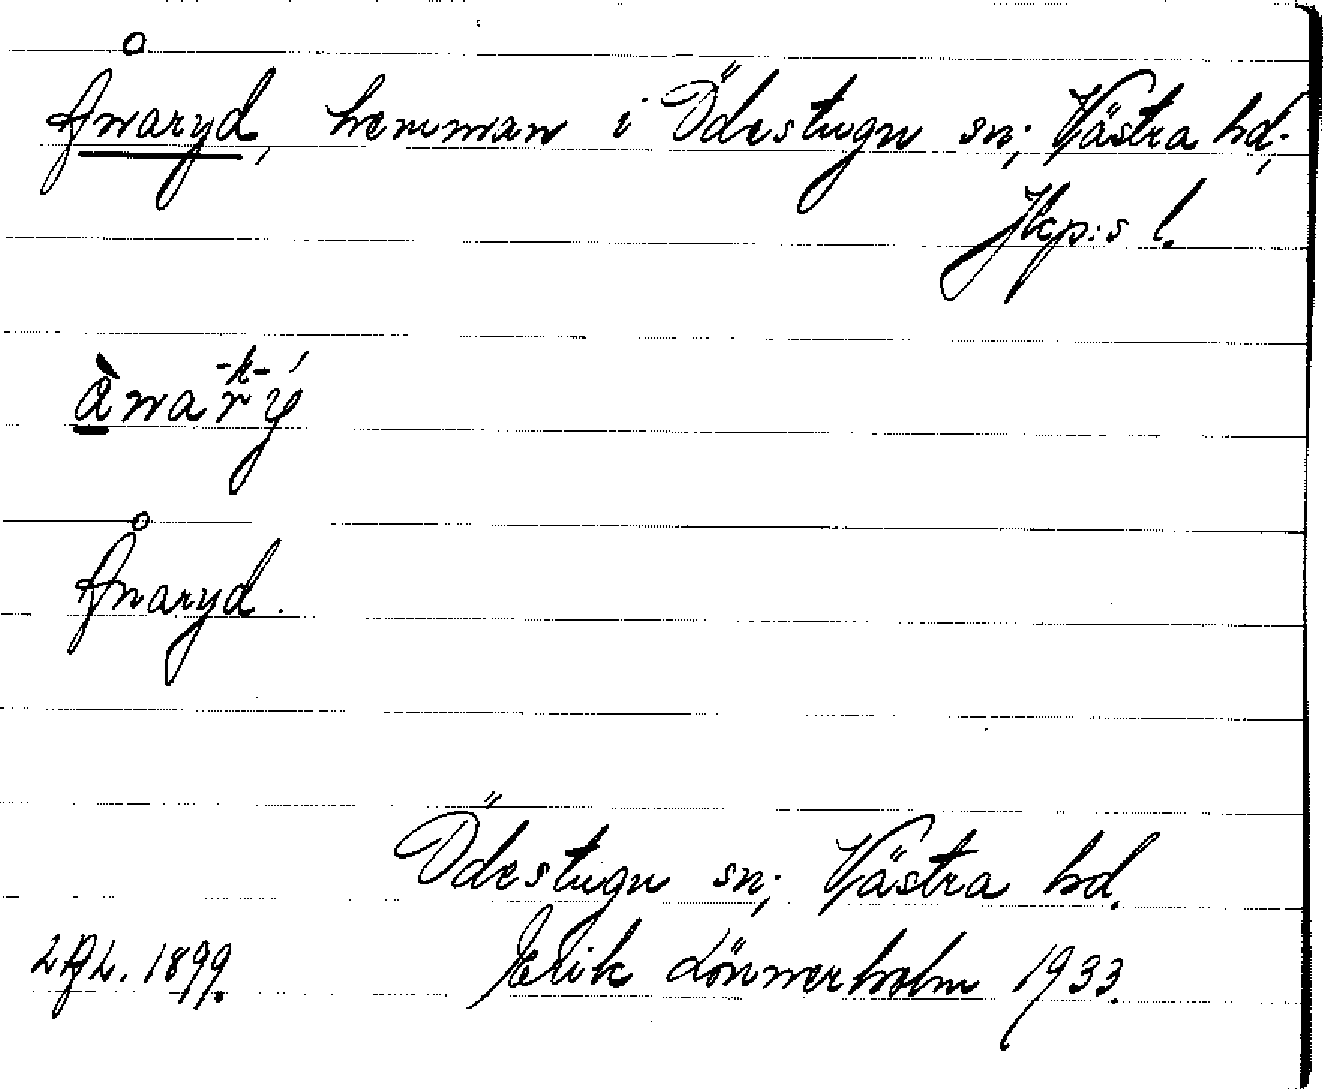 Ånaryd, hemman i Ödestugu sn; Västra hd;
Jkp:s l.
-k-
ànarý
Ånaryd.
Ödestugu sn; Västra hd.
LAL. 1899. Erik Lönnerholm 1933.